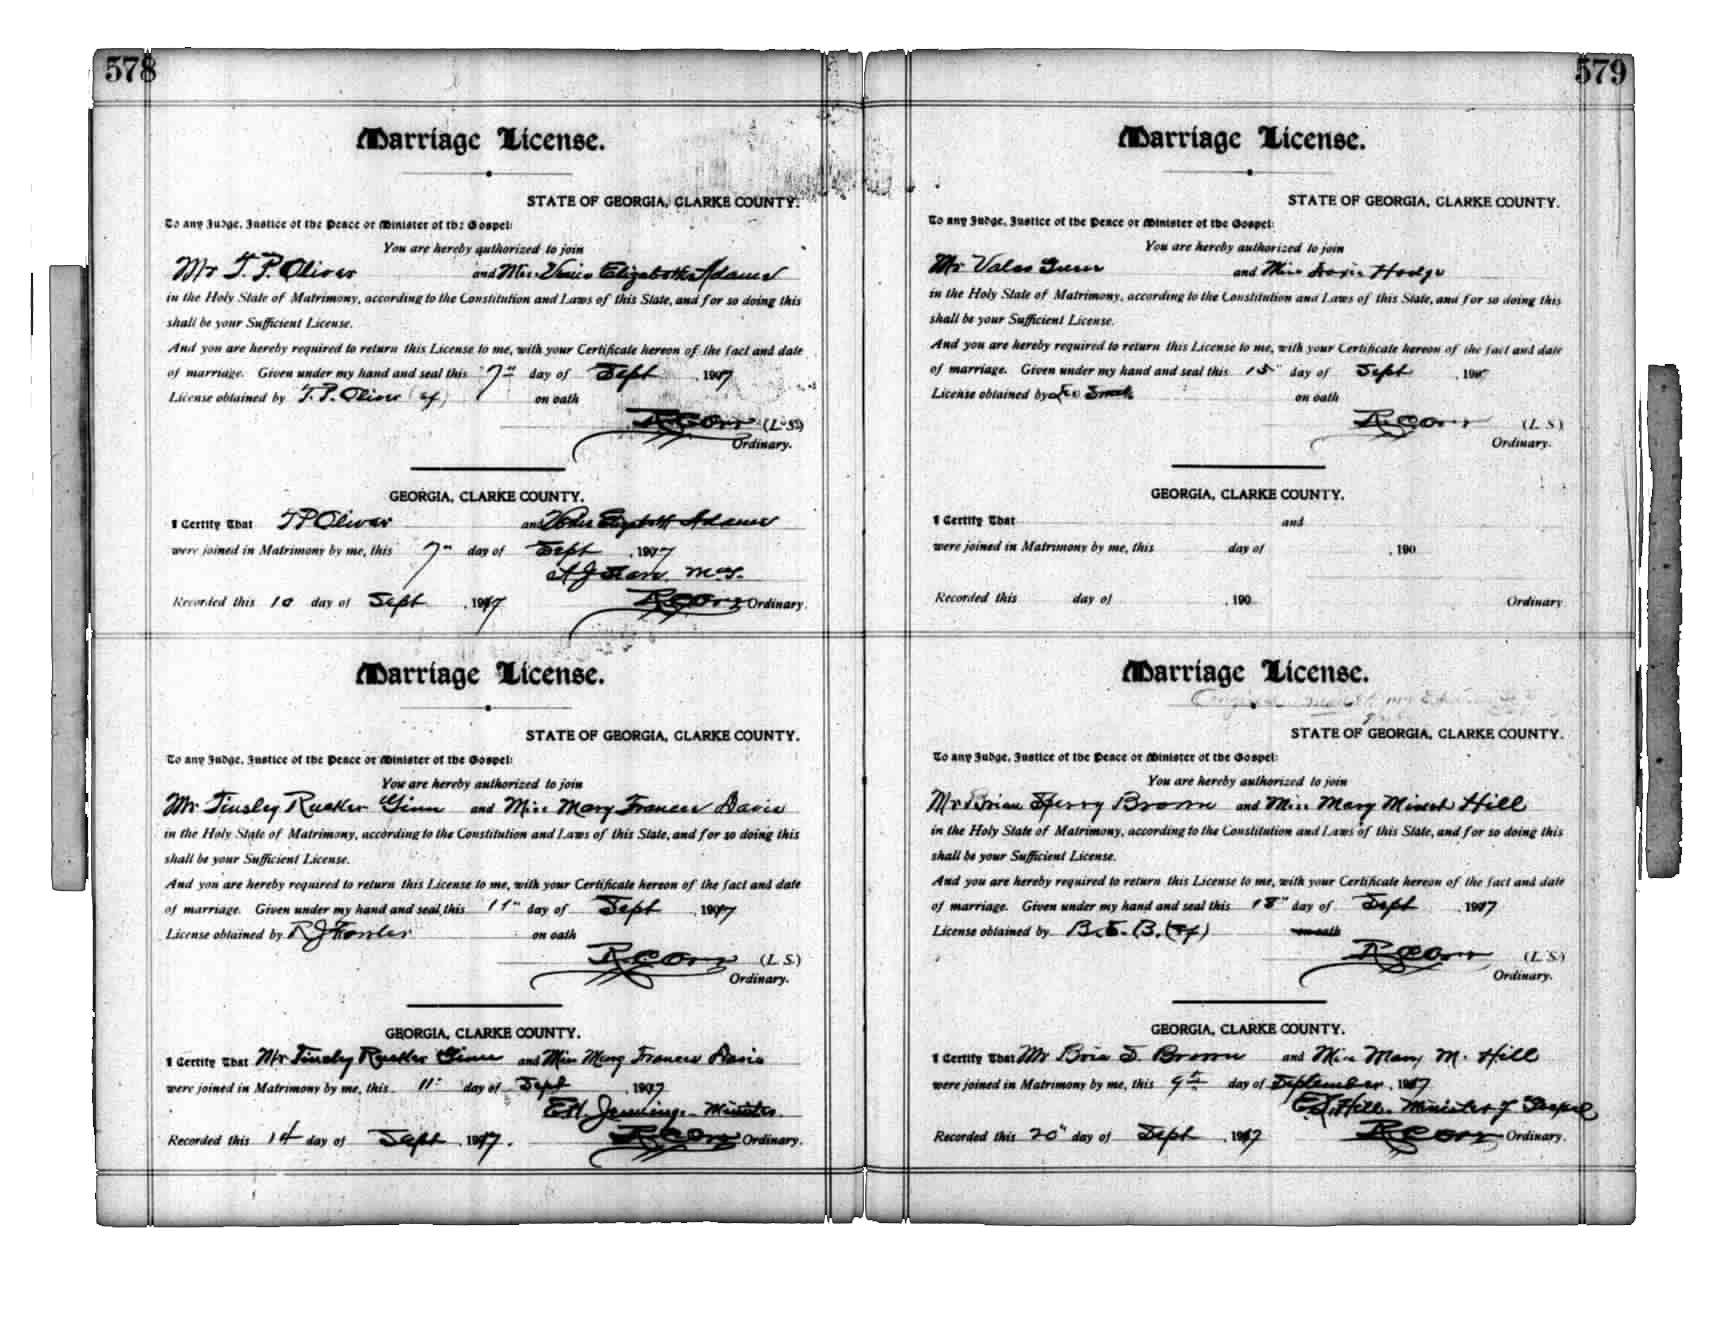 578
Marriage License.
STATE OF GEORGIA, CLARKE COUNTY.
To any Judge, Justice of the Peace or Minister of the Gospel:
You are hereby authorized to join
Mr T. P. Oliver and Miss Elizabeth Adams
in the Holy State of Matrimony, according to the Constitution and Laws of this State, and for so doing this
shall be your Sufficient License.
And you are hereby required to return this License to me, with your Certificate hereon of the fact and date
of marriage. Given under my hand and seal this 7" day of Sept , 1907
License obtained by T. P. Oliver on oath
R C Orr (L. S.)
Ordinary.
GEORGIA, CLARKE COUNTY.
I Certify That T P Oliver and Elizabeth Adams
were joined in Matrimony by me, this 7" day of Sept , 1907
Recorded this 10 day of Sept , 1907 R C Orr Ordinary.
Marriage License.
STATE OF GEORGIA, CLARKE COUNTY.
To any Judge, Justice of the Peace or Minister of the Gospel:
You are hereby authorized to join
Mr Tinsley Rucker Ginn and Miss Mary Frances Davis
in the Holy State of Matrimony, according to the Constitution and Laws of this State, and for so doing this
shall be your Sufficient License.
And you are hereby required to return this License to me, with your Certificate hereon of the fact and date
of marriage. Given under my hand and seal this 11" day of Sept , 1907
License obtained by R J Fowler on oath
R C Orr (L. S.)
Ordinary.
GEORGIA, CLARKE COUNTY.
I Certify That Mr Tinsley Rucker Ginn and Miss Mary Frances Davis
were joined in Matrimony by me, this 11" day of Sept , 1907
E H. Jennings Minister
Recorded this 14 day of Sept , 1907. R C Orr Ordinary.
579
Marriage License.
STATE OF GEORGIA, CLARKE COUNTY.
To any Judge, Justice of the Peace or Minister of the Gospel:
You are hereby authorized to join
Mr and Miss Hodge
in the Holy State of Matrimony, according to the Constitution and Laws of this State, and for so doing this
shall be your Sufficient License.
And you are hereby required to return this License to me, with your Certificate hereon of the fact and date
of marriage. Given under my hand and seal this 15" day of Sept , 1907
License obtained by on oath
R C Orr (L. S.)
Ordinary.
GEORGIA, CLARKE COUNTY.
I Certify That and
were joined in Matrimony by me, this day of , 190
Recorded this day of , 190 Ordinary
Marriage License.
STATE OF GEORGIA, CLARKE COUNTY.
To any Judge, Justice of the Peace or Minister of the Gospel:
You are hereby authorized to join
Mr Brown and Miss Mary Hill
in the Holy State of Matrimony, according to the Constitution and Laws of this State, and for so doing this
shall be your Sufficient License.
And you are hereby required to return this License to me, with your Certificate hereon of the fact and date
of marriage. Given under my hand and seal this 18" day of Sept , 1907
License obtained by B. S. B. on oath
R C Orr (L. S.)
Ordinary.
GEORGIA, CLARKE COUNTY.
I Certify That Mr S. Brown and Miss Mary M. Hill
were joined in Matrimony by me, this day of September , 1907
Hill. Minister of Gospel
Recorded this 20" day of Sept , 1907 R C Orr Ordinary.